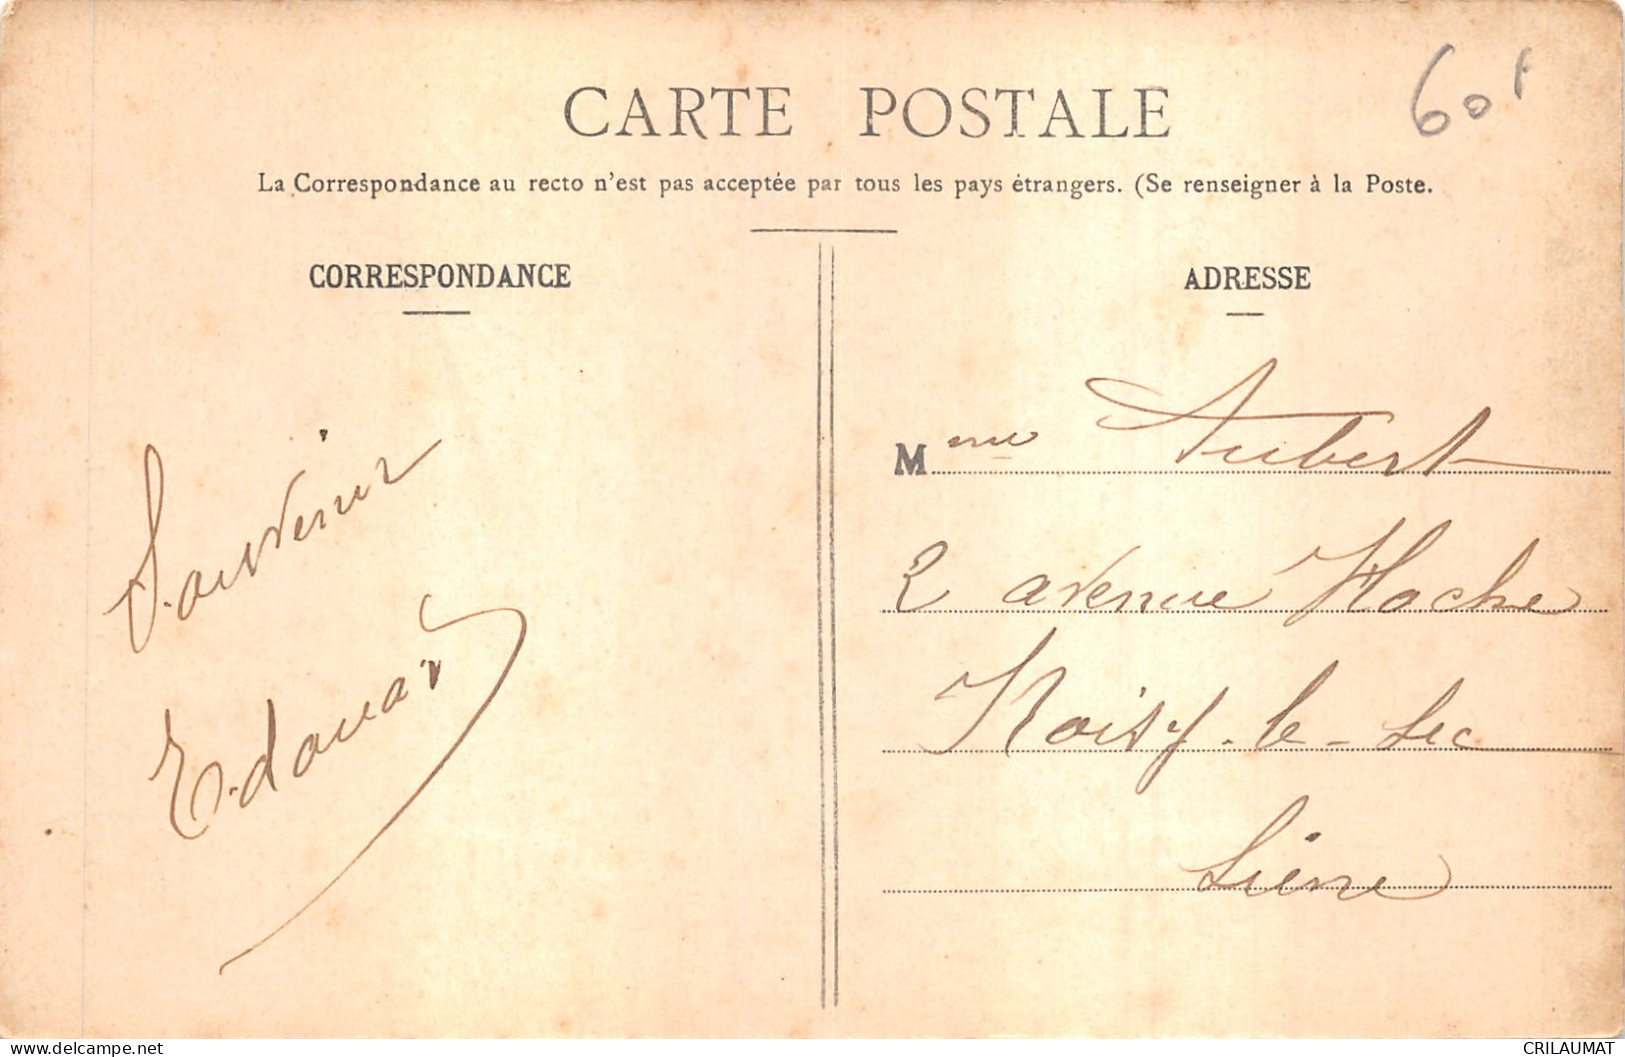 60f
CARTE POSTALE
La Correspondance au recto n'est pas acceptée par tous les pays étrangers. (Se renseigner à la Poste.
CORRESPONDANCE
Souvenir
Edouard
ADRESSE
Mme Aubert
2 avenue Hoche
Noisy-le-Sec
Seine
www.delcampe.net
CRILAUMAT